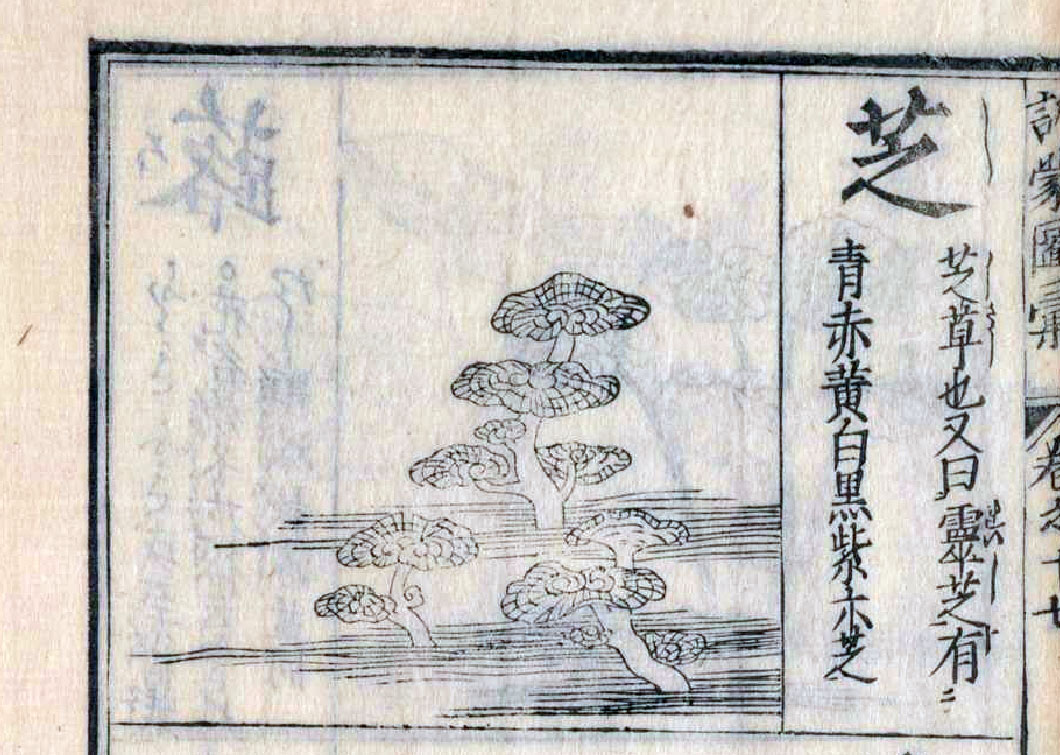 訓蒙圖彙 卷之十七
芝
し
芝草也又曰靈芝有ニ
青赤黄白黒紫六芝